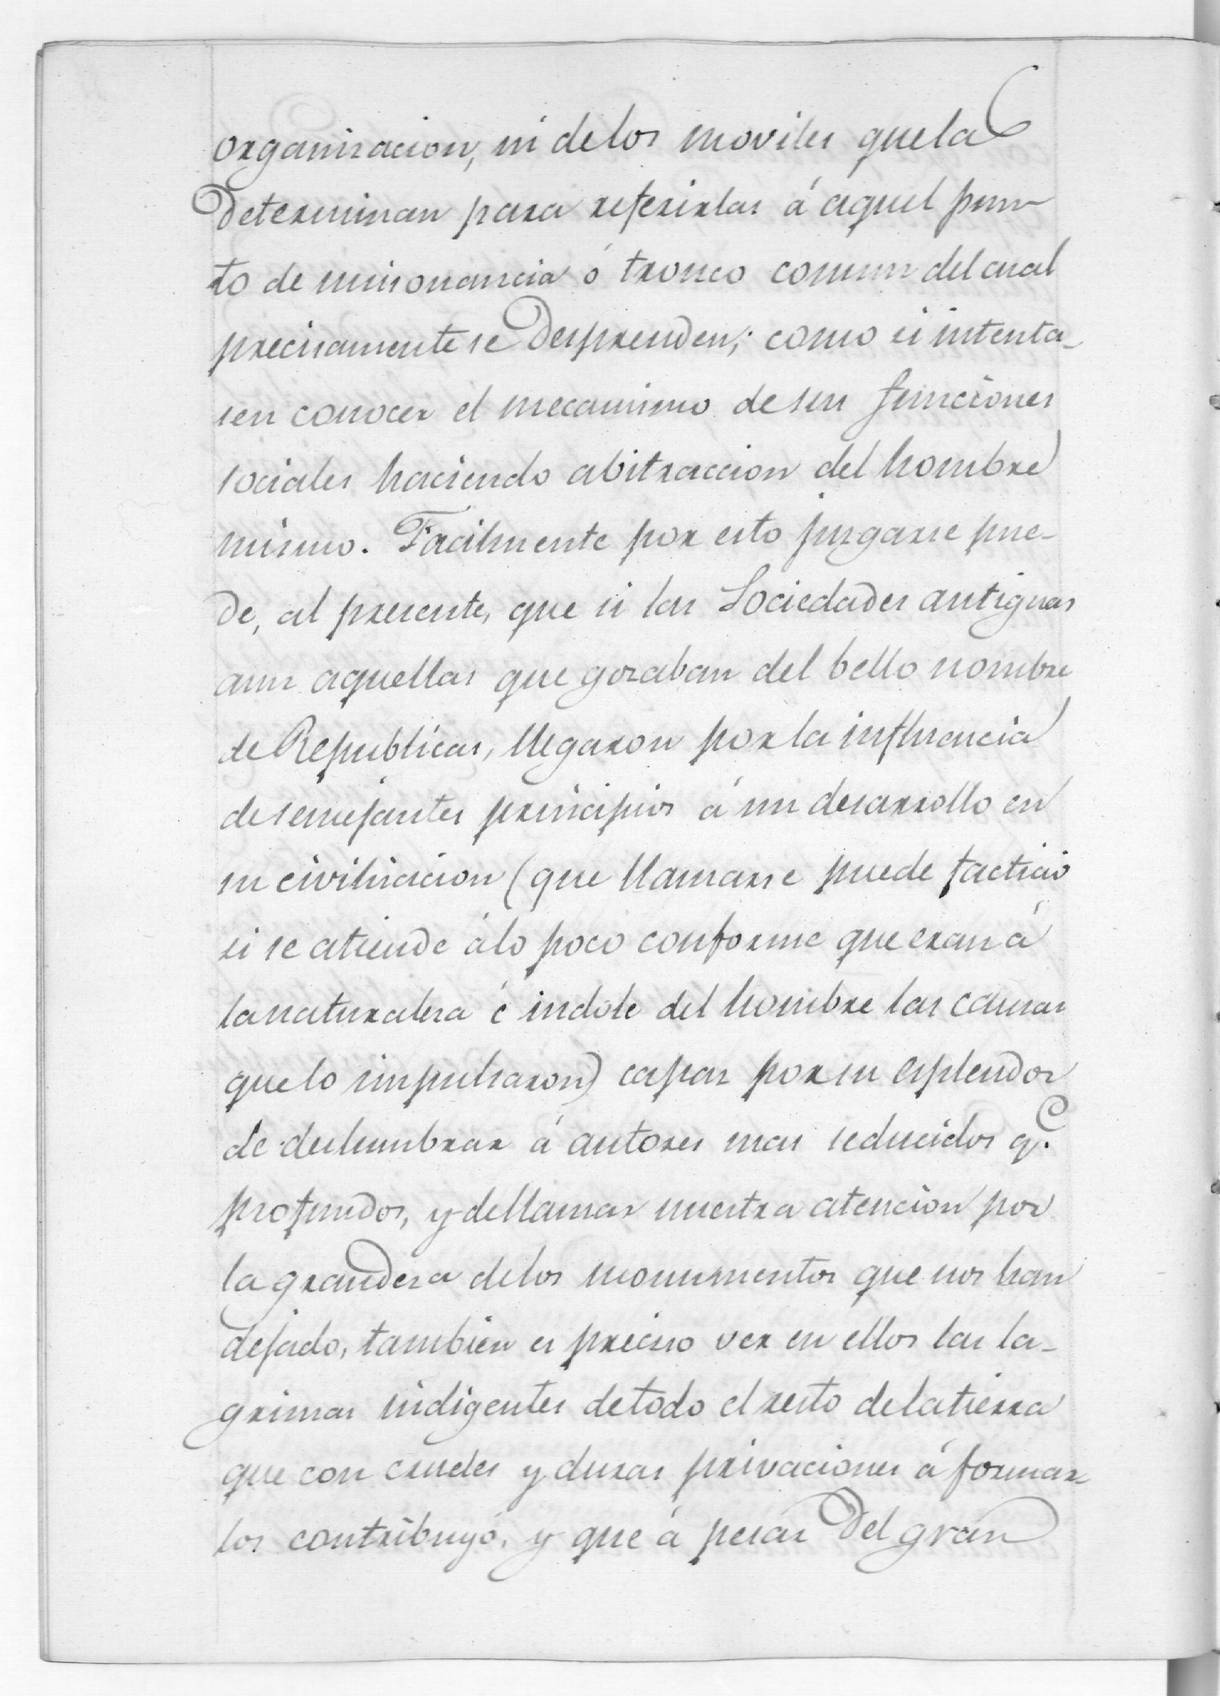 organizacion, ni de los moviles que la
determinan para referirlas á aquel pun-
to de unisonancia ó tronco comun del cual
precisamente se desprenden; como si intenta-
sen conocer el mecanismo de sus funciones
sociales haciendo abstraccion del hombre
mismo. Facilmente por esto juzgarse pue-
de, al presente, que si las Sociedades antiguas
aun aquellas que gozaban del bello nombre
de Republicas, llegaron por la influencia
de semejantes principios á un desarrollo en
su civilizacion (que llamarse puede facticio
si se atiende á lo poco conforme que eran á
la naturaleza é indole del hombre las causas
que lo impulsaron) capaz por su esplendor
de deslumbrar á autores mas seducidos q.e
profundos, y de llamar nuestra atencion por
la grandeza de los monumentos que nos han
dejado, tambien es preciso ver en ellos las la-
grimas indigentes de todo el resto de la tierra
que con crueles y duras privaciones á formar-
los contribuyó, y que á pesar del gran